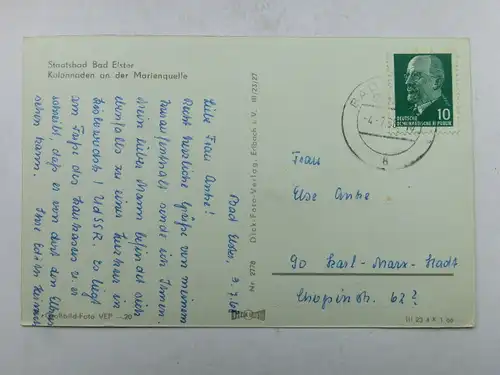 Staatsbad Bad Elster
Kolonnaden an der Marienquelle
Bad Elster, 3.7.67
Liebe Frau Anke!
Recht herzliche Grüße von meinem
Kuraufenthalt sende ich Ihnen.
Mein lieber Mann befindet sich
ebenfalls zu einer Kur
in
Kislowodsk / UdSSR. Es liegt
am Fuße des Kaukasus u. er
schreibt, daß er von dort den Elbrus
sehen kann. Ihre Edith
Nr. 2776 Dick-Foto-Verlag, Erlbach i. V. III/23/27
Echt Foto
BAD
DEUTSCHE
DEMOKRATISCHE REPUBLIK
10
a
Frau
Else Anke
90 Karl-Marx-Stadt
Chopinstr. 62?
Großbild-Foto VEP -.20
III 23 4 A 1 66